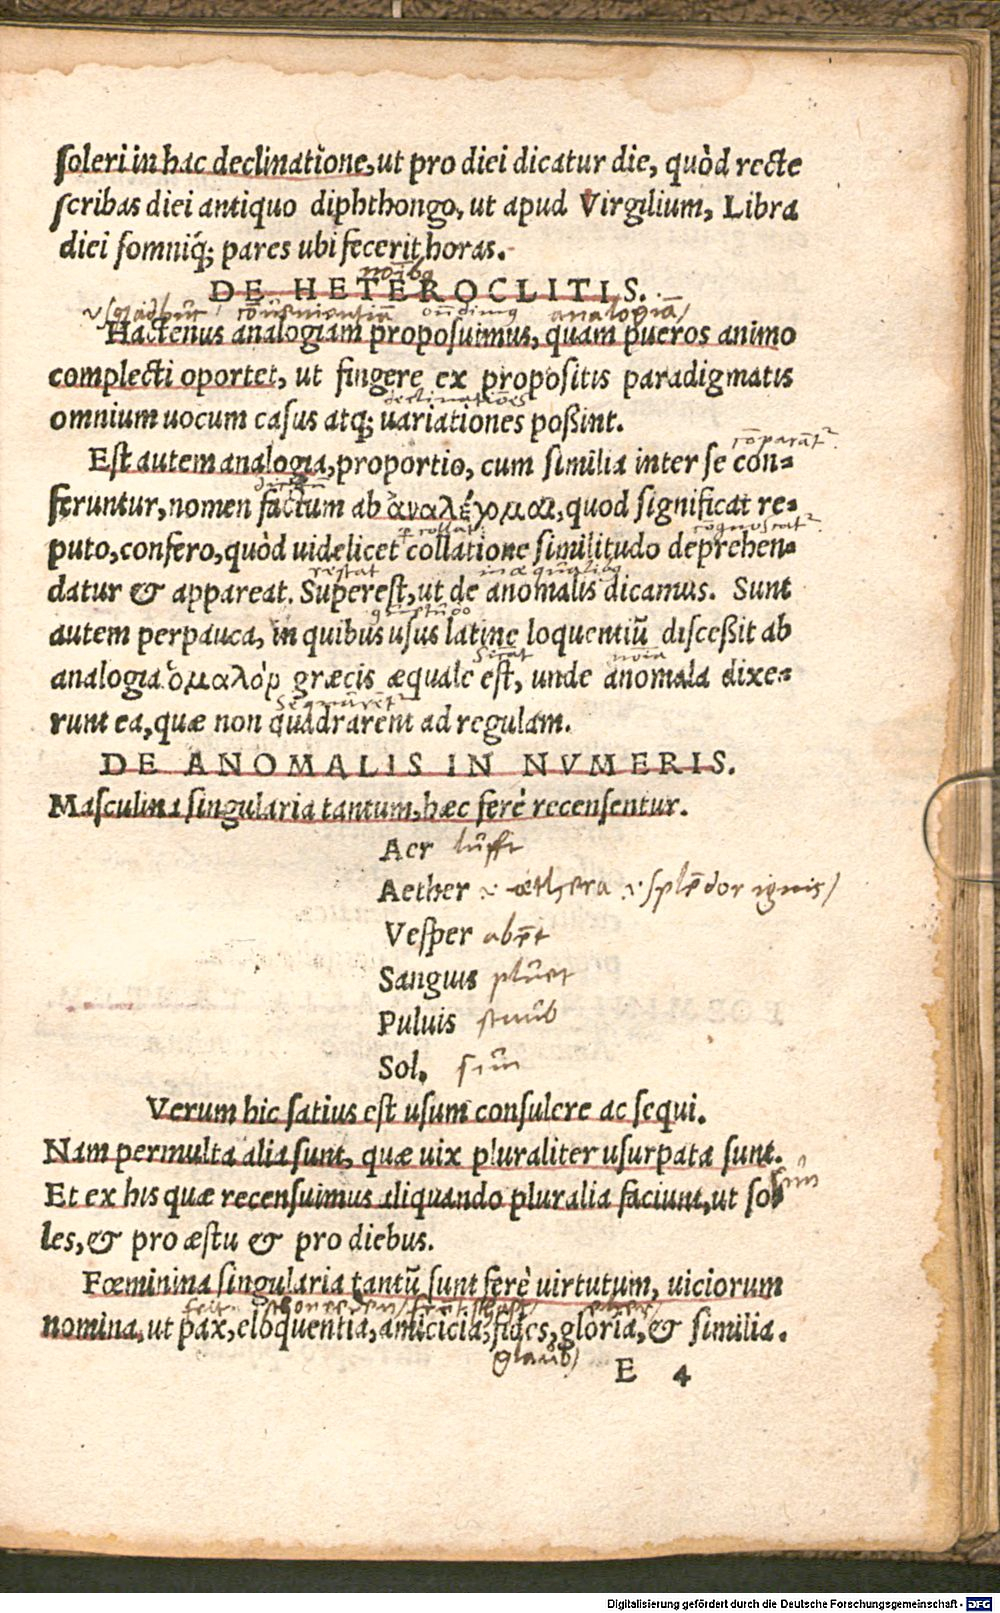 soleri in hac declinatione, ut pro diei dicatur die, quòd recte
scribas diei antiquo diphthongo, ut apud Virgilium, Libra
diei somniq́; pares ubi fecerit horas.
DE HETEROCLITIS.
analogiã
Hactenus analogiam proposuimus, quam pueros animo
complecti oportet, ut fingere ex propositis paradigmatis
declinationes
omnium uocum casus atq; uariationes poßint.
Est autem analogia, proportio, cum similia inter se con-
feruntur, nomen factum ab ἀναλέγομαι, quod significat re-
puto, confero, quòd uidelicet collatione similitudo deprehen-
restat
datur & appareat. Superest, ut de anomalis dicamus. Sunt
autem perpauca, in quibus usus latine loquentiũ disceßit ab
analogia. ὁμαλὸν græcis æquale est, unde anomala dixe-
runt ea, quæ non quadrarent ad regulam.
DE ANOMALIS IN NVMERIS.
Masculina singularia tantum, hæc ferè recensentur.
Aer lufft
Aether æthera splẽdor ignis
Vesper
Sanguis pluet
Puluis staub
Sol. sun
Verum hic satius est usum consulere ac sequi.
Nam permulta alia sunt, quæ uix pluraliter usurpata sunt.
Et ex his quæ recensuimus aliquando pluralia faciunt, ut so-
les, & pro æstu & pro diebus.
Fœminina singularia tantũ sunt ferè uirtutum, uiciorum
nomina, ut pax, eloquentia, amicicia, fides, gloria, & similia.
glaub
E 4
Digitalisierung gefördert durch die Deutsche Forschungsgemeinschaft - DFG